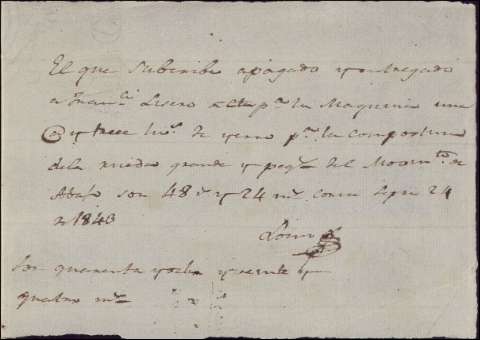 El que subscribe apagado y entregado
a Fran.co Lisero p.r la Maquina una
@ y trece lis.s de yerro p.a la compostura
dela rueda grande y peq.a del Movim.to de
Abajo son 48 r.s y 24 m.s 24
de 1843
son quarenta y ocho y veinte y
quatro m.s